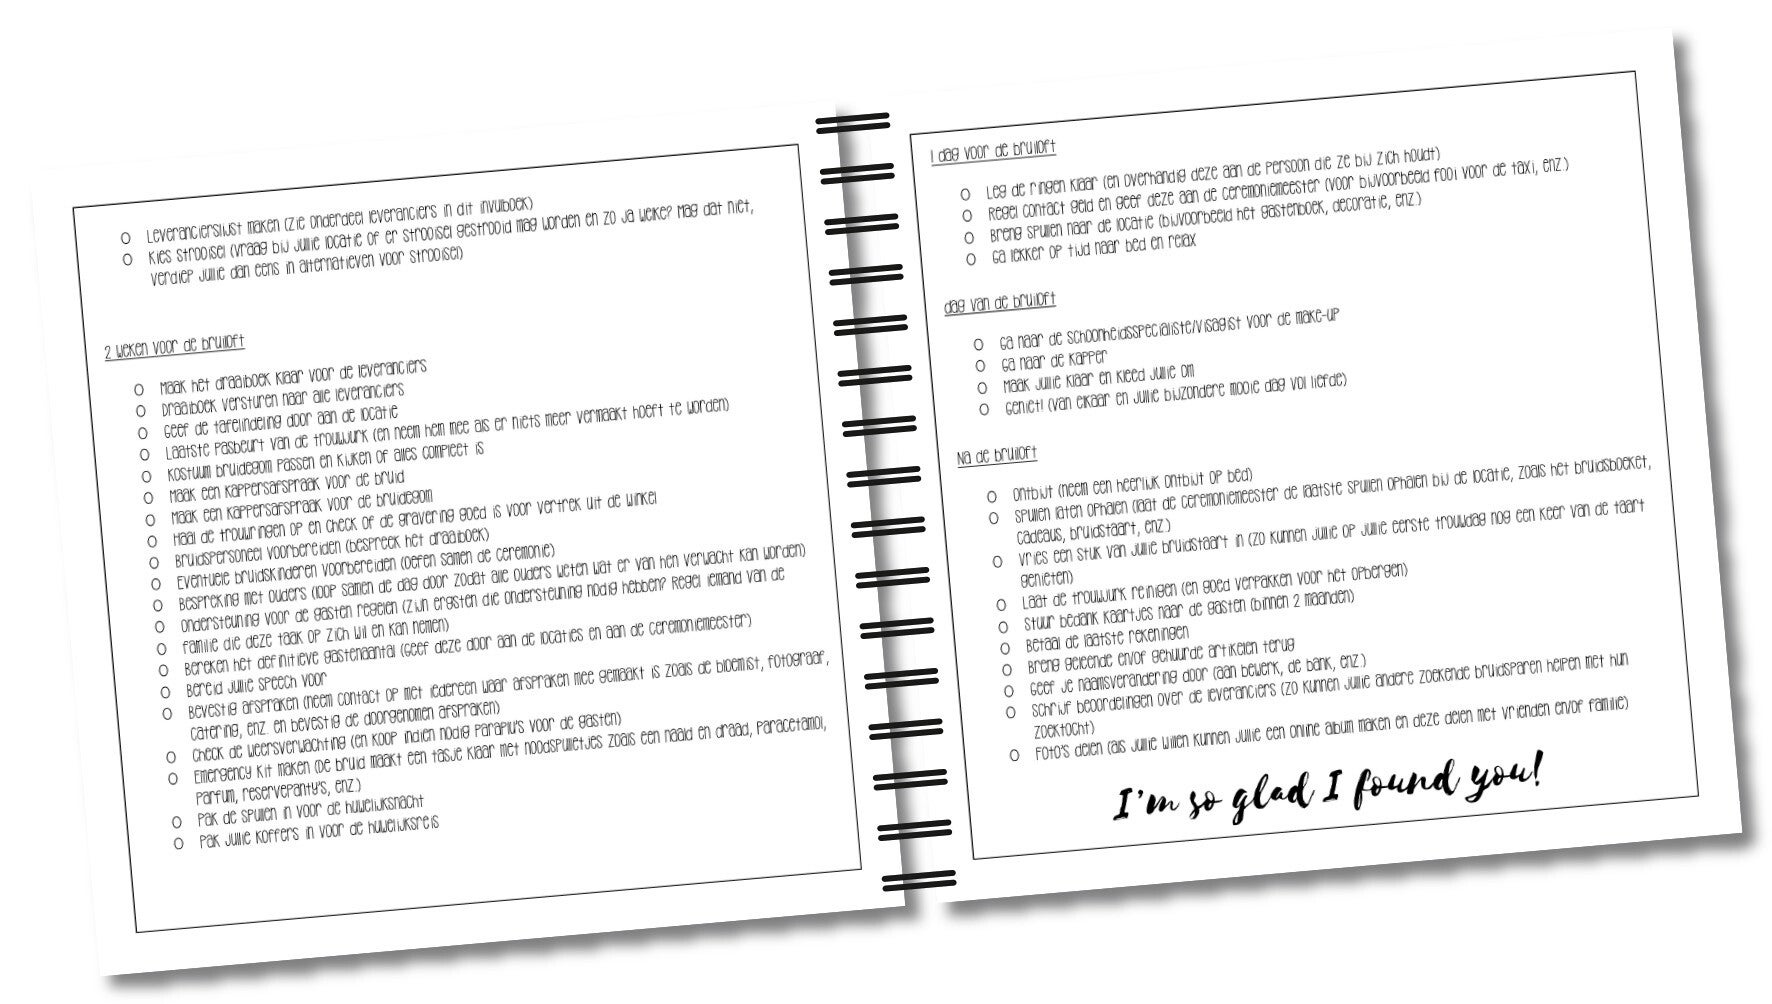 O Leverancierslijst maken (zie onderdeel leveranciers in dit invulboek)
O Kies strooisel (vraag bij jullie locatie of er strooisel gestrooid mag worden en zo ja welke? Mag dat niet,
verdiep jullie dan eens in alternatieven voor strooisel)
2 weken voor de bruiloft
O Maak het draaiboek klaar voor de leveranciers
O Draaiboek versturen naar alle leveranciers
O Geef de tafelindeling door aan de locatie
O Laatste pasbeurt van de trouwjurk (en neem hem mee als er niets meer vermaakt hoeft te worden)
O Kostuum bruidegom passen en kijken of alles compleet is
O Maak een kappersafspraak voor de bruid
O Maak een kappersafspraak voor de bruidegom
O Haal de trouwringen op en check of de gravering goed is voor vertrek uit de winkel
O Bruidspersoneel voorbereiden (bespreek het draaiboek)
O Eventuele bruidskinderen voorbereiden (oefen samen de ceremonie)
O Bespreking met ouders (loop samen de dag door zodat alle ouders weten wat er van hen verwacht kan worden)
O Ondersteuning voor de gasten regelen (zijn ergsten die ondersteuning nodig hebben? Regel iemand van de
O familie die deze taak op zich wil en kan nemen)
O Bereken het definitieve gastenaantal (Geef deze door aan de locaties en aan de ceremoniemeester)
O Bereid jullie speech voor
O Bevestig afspraken (neem contact op met iedereen waar afspraken mee gemaakt is zoals de bloemist, fotograaf,
catering, enz. en bevestig de doorgenomen afspraken)
O Check de weersverwachting (en koop indien nodig paraplu's voor de gasten)
O Emergency kit maken (De bruid maakt een tasje klaar met noodspulletjes zoals een naald en draad, paracetamol,
parfum, reservepanty's, enz.)
O Pak de spullen in voor de huwelijksnacht
O Pak jullie koffers in voor de huwelijksreis
1 dag voor de bruiloft
O Leg de ringen klaar (en overhandig deze aan de persoon die ze bij zich houdt)
O Regel contact geld en geef deze aan de ceremoniemeester (voor bijvoorbeeld fooi voor de taxi, enz.)
O Breng spullen naar de locatie (bijvoorbeeld het gastenboek, decoratie, enz.)
O Ga lekker op tijd naar bed en relax
dag van de bruiloft
O Ga naar de schoonheidsspecialiste/visagist voor de make-up
O Ga naar de kapper
O Maak jullie klaar en kleed jullie om
O Geniet! (van elkaar en jullie bijzondere mooie dag vol liefde)
Na de bruiloft
O Ontbijt (neem een heerlijk ontbijt op bed)
O Spullen laten ophalen (laat de ceremoniemeester de laatste spullen ophalen bij de locatie, zoals het bruidsboeket,
cadeaus, bruidstaart, enz.)
O Vries een stuk van jullie bruidstaart in (zo kunnen jullie op jullie eerste trouwdag nog een keer van de taart
genieten)
O Laat de trouwjurk reinigen (en goed verpakken voor het opbergen)
O Stuur bedank kaartjes naar de gasten (binnen 2 maanden)
O Betaal de laatste rekeningen
O Breng geleende en/of gehuurde artikelen terug
O Geef je naamsverandering door (aan bewerk, de bank, enz.)
O Schrijf beoordelingen over de leveranciers (zo kunnen jullie andere zoekende bruidsparen helpen met hun
zoektocht)
O Foto's delen (als jullie willen kunnen jullie een online album maken en deze delen met vrienden en/of familie)
I'm so glad I found you!